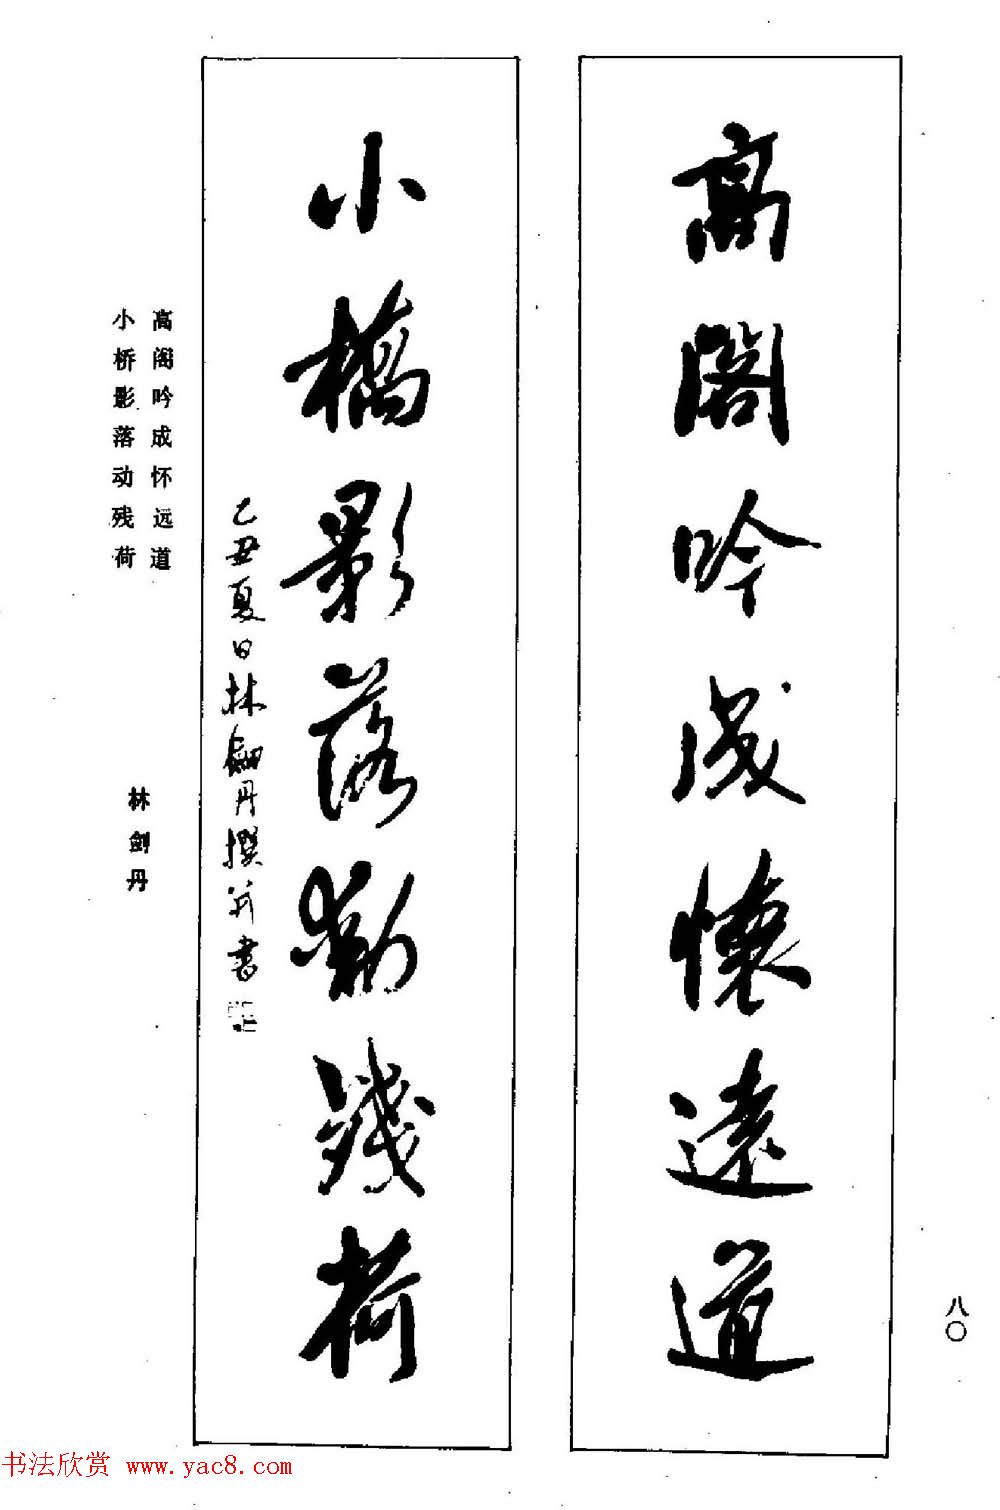 八〇
高閣吟成懷遠道
小橋影落動殘荷
乙丑夏日林劍丹撰并書
高阁吟成怀远道
小桥影落动残荷
林剑丹
书法欣赏 www.yac8.com